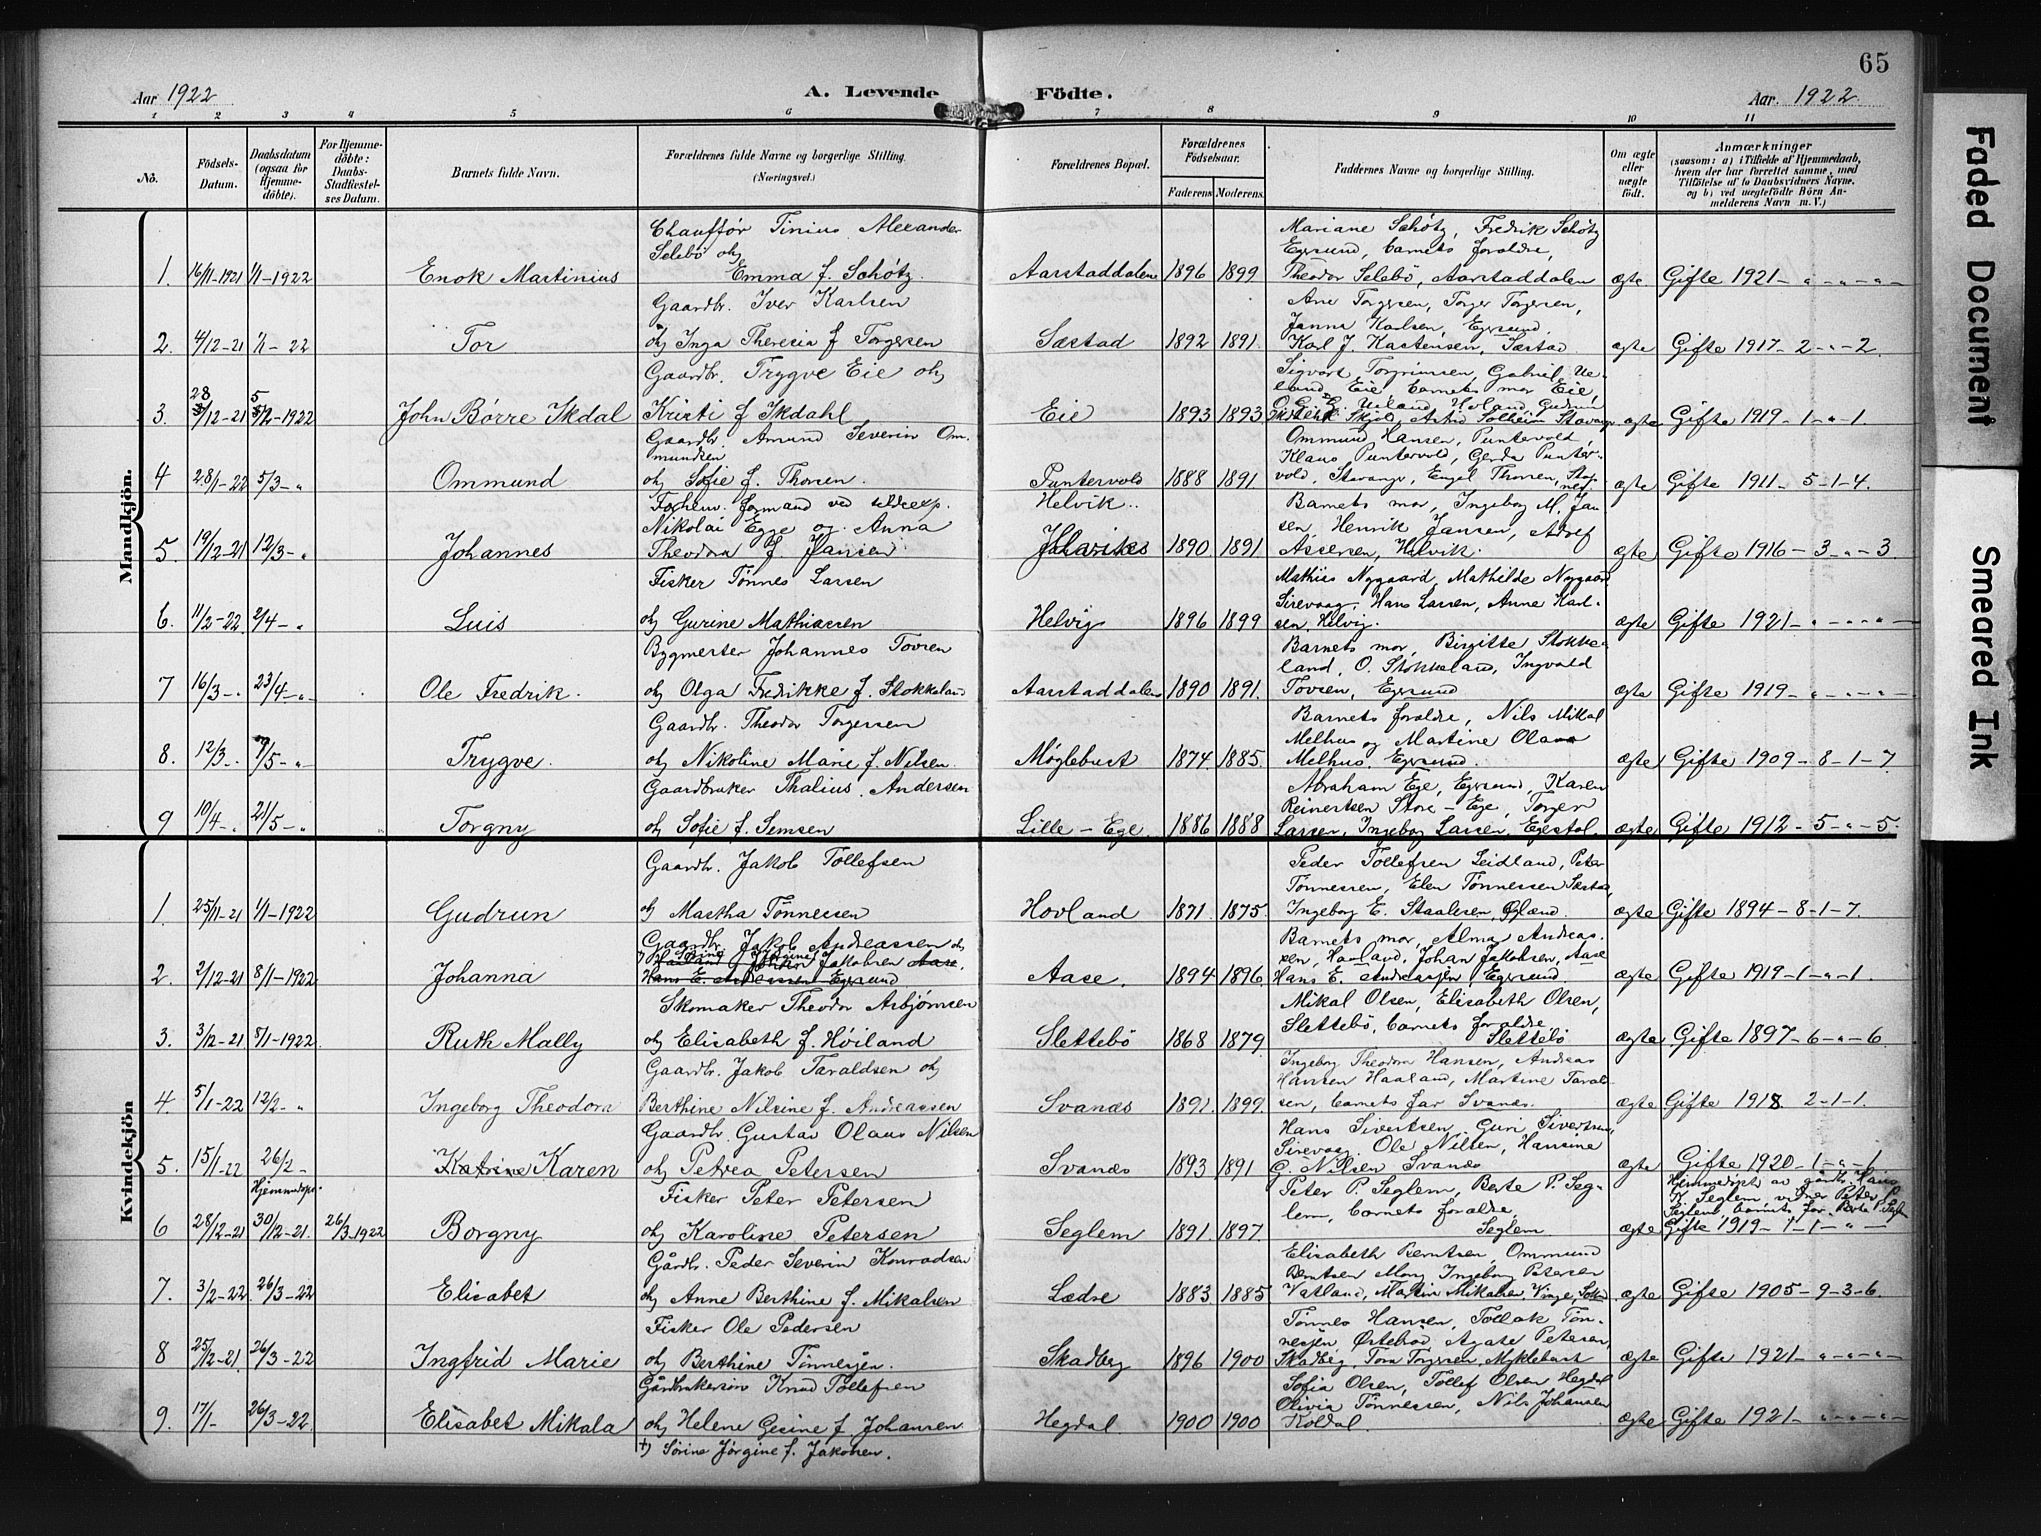 65
Aar 1922
A. Levende Födte.
Aar. 1922
1 2 3 4 5 6 7 8 9 10 11
No.
Födsels-Datum.
Daabsdatum (ogsaa for Hjemme-döbte).
For Hjemme-döbte: Daabs-Stadfæstel-ses Datum.
Barnets fulde Navn.
Forældrenes fulde Navne og borgerlige Stilling. (Næringsvei.)
Forældrenes Bopæl.
Forældrenes Födselsaar.
Faderens. Moderens.
Faddernes Navne og borgerlige Stilling.
Om ægte eller uægte födt.
Anmærkninger (saasom: a) i Tilfælde af Hjemmedaab, hvem der har forrettet samme, med Tilföielse af to Daabsvidners Navne, og b) ved uegtefödte Börn An-melderens Navn m. V.)
Mandkjön.
1. 16/11-1921 1/1-1922 Enok Martinius
Chauffør Tinius Alexander
Selebö og
Emma f. Schøtz
Aarstaddalen 1896 1899
Mariane Schøtz, Fredrik Schøtz
Egersund, barnets foraldre,
Theodor Selebö, Aarstaddalen
ægte Gifte 1921 - " - " - " -
2. 4/12-21 1/1-22 Tor
Gaardbr. Iver Karlsen
og Inga Theresia f Torgersen
Sæstad 1892 1891
Ane Torgersen, Torger Torgersen,
Janna Karlsen, Egersund.
Karl J. Karstensen, Sæstad.
ægte Gifte 1917 - 2 - " - 2.
3. 28/12-21 5/2-1922 John Börre Ikdal
Gaardbr. Trygve Eie og
Kristi f Ikdahl
Eie 1893 1893
Sigvart Torgrimsen, Gabriel Ue-
land, Eie barnets mor Eie,
ægte Gifte 1919 - 1 - " - 1.
4 28/1-22 5/3- " Ommund
Gaardbr. Amund Severin Om-
mundsen
og Sofie f. Thorsen.
Puntervold 1888 1891
Ommund Hansen, Puntervold,
Klaus Puntervold, Gerda Punter-
vold, Stavanger, Engel Thorsen,
ægte Gifte 1911 - 5 - 1 - 4.
5. 19/12-21 12/3- " Johannes
Forhenv. formand ved
Nikolai Ege og Anna
Theodora f Jansen
Helvik.. 1890 1891
Barnets mor, Ingeborg M. Jan-
sen, Henrik Jansen, Adolf
Assersen, Helvik.
ægte Gifte 1916 - 3 - " - 3.
6. 11/2-22 2/4- " Luis
Fisker Tønnes Larsen
og Gurine Mathiassen
Helvig 1896 1899
Mathias Nygaard, Mathilde Nygaard
Sirevaag, Hans Larsen, Anne Karl-
sen, Helvig.
ægte Gifte 1921 - " - " - " -
7 16/3- " 23/4- " Ole Fredrik.
Bygmester Johannes Tovsen
og Olga Fredrikke f. Stokkeland
Aarstaddalen 1890 1891.
Barnets mor, Birgitte Stokke-
land, O. Stokkeland, Ingvald
Tovsen, Egersund
ægte Gifte 1919 - " - " - " -
8. 12/3- " 7/5- " Trygve.
Gaardbr. Theodor Torgersen
og Nikoline Marie f. Nilsen.
Møglebust 1874 1885.
Barnets foraldre, Nils Mikal
Melhus og Martine Olava
Melhus, Egersund.
ægte Gifte 1909 - 8 - 1 - 7
9 10/4- " 21/5- " Torgny
Gaardbruker Thalius Andersen
og Sofie f. Semsen
Lille-Ege. 1886 1888
Abraham Ege, Egersund, Karen
Reinertsen Store-Ege, Torger
Larsen, Ingeborg Larsen, Egestol.
ægte Gifte 1912 - 5 - " - 5.
Kvindekjön
1. 25/11-21 1/1-1922 Gudrun
Gaardbr. Jakob Tollefsen
og Martha Tönnessen
Hovland 1871. 1875.
Peder Tollefsen Leidland, Peter
Tønnessen, Elen Tønnessen Sæstad,
Ingeborg E. Staalesen,
ægte Gifte 1894 - 8 - 1 - 7.
2. 2/12-21 8/1-1922 Johanna
Gaardbr. Jakob Andreassen og
Hans E. Andreassen Egersund
Aase. 1894 1896
Barnets mor, Alma Andreas-
sen, Haaland, Johan Jakobsen, Aase
Hans E. Andreassen, Egersund
ægte Gifte 1919 - 1 - " - 1.
3. 3/12-21 8/1-1922. Ruth Mally
Skomaker Theodor Asbjørnsen
og Elisabeth f. Høiland
Slettebö 1868 1879
Mikal Olsen, Elisabeth Olsen,
Slettebö, barnets foraldre
Slettebö
ægte Gifte 1897 - 6 - " - 6.
4. 5/1-22 12/2- " Ingeborg Theodora
Gaardbr. Jakob Taraldsen og
Berthine Nilsine f. Andreassen
Svanæs 1891. 1899.
Ingeborg Theodora Hansen, Andreas
Hansen Haaland, Martine Tarald-
sen, barnets far Svanæs.
ægte Gifte 1918. 2 - 1 - 1.
5. 15/1-22 26/2- Katrine Karen
Gaardbr. Gustav Olaus Nilsen
og Petrea Petersen
Svanæs 1893 1891
Hans Sivertsen, Guri Sivertsen,
Sirevaag, Ole Nilsen, Hansine
G. Nilsen Svanæs
ægte Gifte 1920 - 1 - " - 1
6 28/12-21 Hjemmedøpt 30/12-21. 26/3-1922 Borgny
Fisker Peter Petersen
og Karoline Petersen
Seglem 1891. 1897.
Peter P. Seglem, Berte P. Seg-
lem, barnets foraldre,
Seglem
ægte
Hjemmedøpt av gårdbr. Hans
K. Seglem, vidner Peter P.
Seglem, barnets far, Berte P. Seglem
Gifte 1919 - 1 - 1 - " -
7. 3/2-22 26/3-22 Elisabet
Gårdbr. Peder Severin Konradsen
og Anne Berthine f. Mikalsen
Lædre 1883 1885
Elisabeth Berntsen, Ommund
Berntsen Mong, Ingeborg Petersen
Vatland, Martin Mikalsen, Vinje,
ægte Gifte 1905 - 9 - 3 - 6.
8 25/12-21. 26/3-22 Ingfrid Marie
Fisker Ole Pedersen
og Berthine Tønnesen.
Skadberg 1896 1900
Tønnes Hansen, Tollak Tøn-
nesen, Østebrö, Agate Petersen,
Skadberg, Tora Torgersen, Myklebust
ægte Gifte 1921 - " - " - " -
9. 17/1- 26/3-22. Elisabet Mikala
Gårdbrukersön Knud Tollefsen
og Helene Gesine f. Johansen
Hegdal. 1900 1900
Sofia Olsen, Tollef Olsen Hegdal
Olivia Tønnessen, Nils Johansen
Koldal.
ægte Gifte 1921 - " - " - " -
†) Sörine Jörgine f. Jakobsen.
Faded Document
Smeared Ink